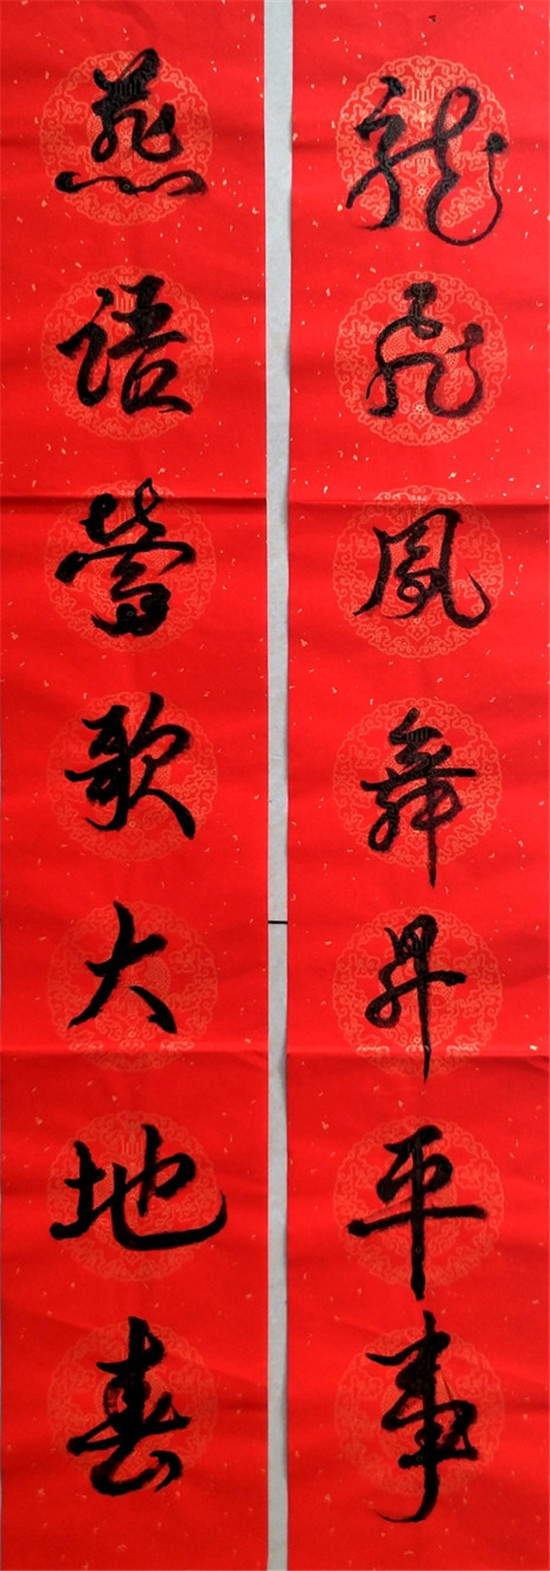 龍飛鳳舞昇平事
燕语莺歌大地春